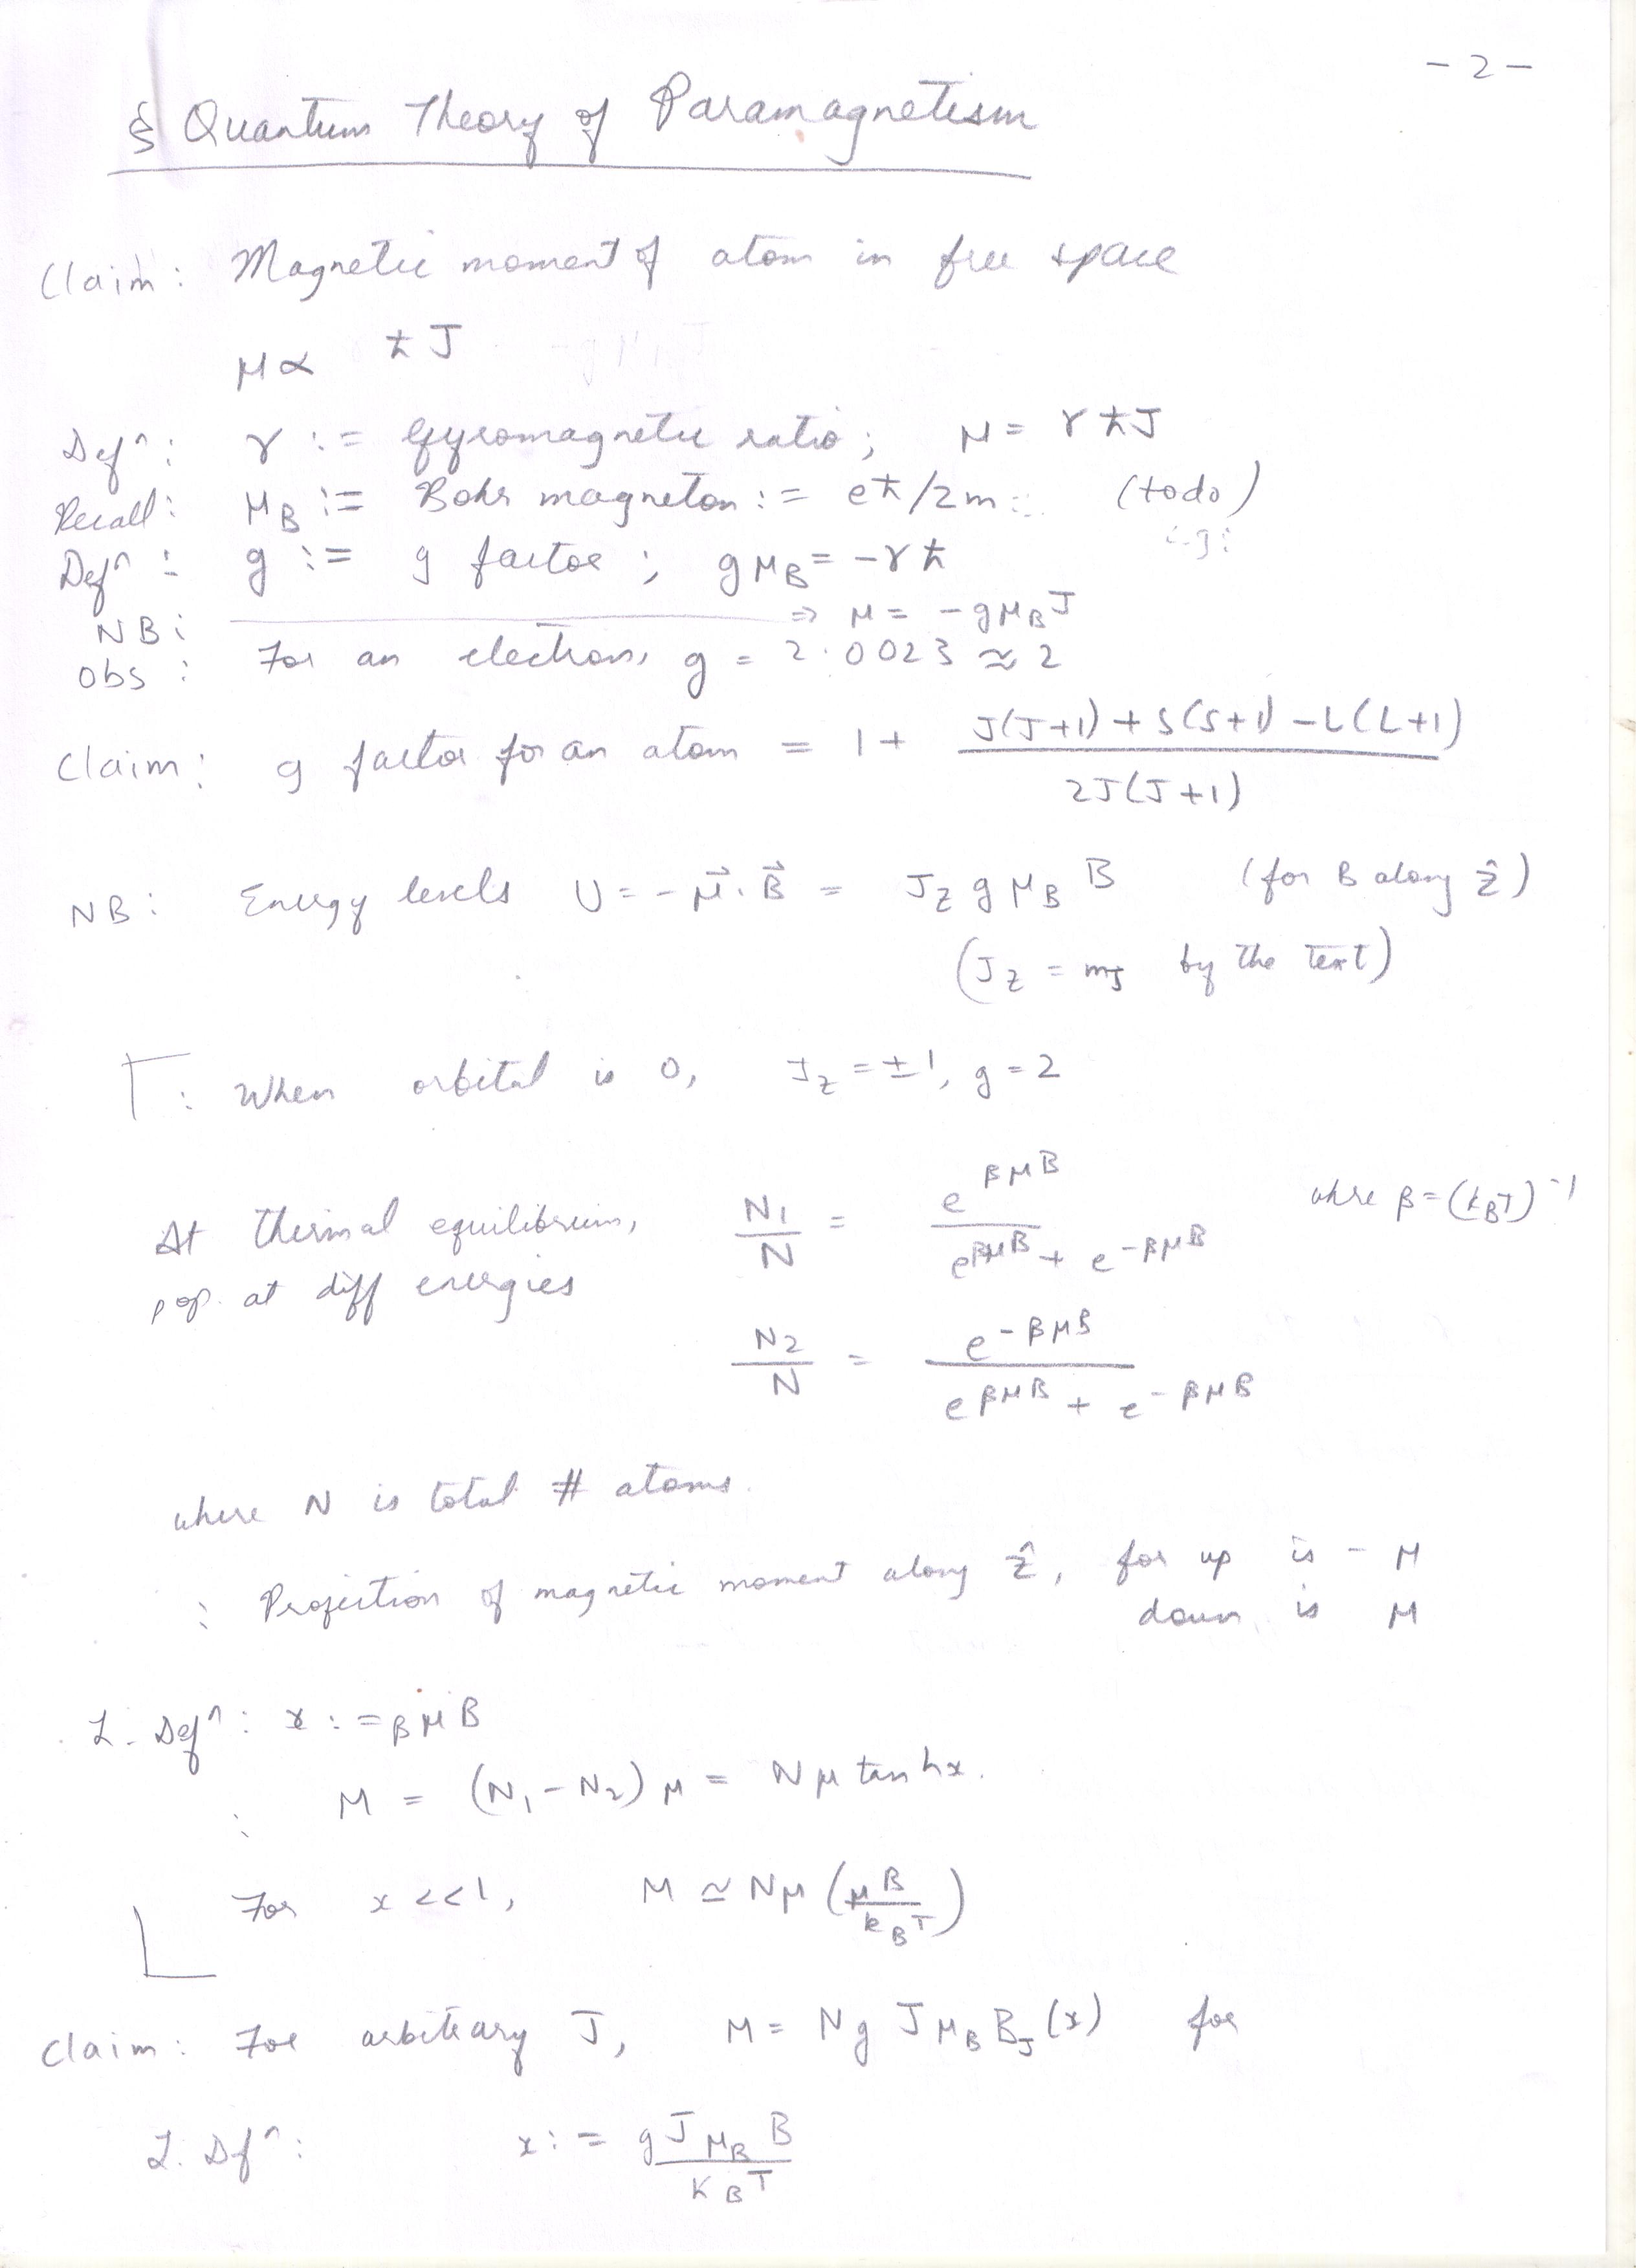 - 2 -
§ Quantum Theory of Paramagnetism
Claim: Magnetic moment of atom in free space
μ ∝ ħJ
Defⁿ: γ := Gyromagnetic ratio; μ = γħJ
Recall: μ_B := Bohr magneton := eħ/2m (todo)
Defⁿ: g := g factor; gμ_B = -γħ
NB: ⇒ μ = -gμ_B J
Obs: For an electron, g = 2.0023 ≈ 2
Claim: g factor for an atom = 1 + (J(J+1) + S(S+1) - L(L+1)) / 2J(J+1)
NB: Energy levels U = -μ⃗·B⃗ = J_z g μ_B B (for B along ẑ)
(J_z = m_J by the text)
: When orbital is 0, J_z = ±1, g = 2
At thermal equilibrium, N₁/N = e^{βμB} / (e^{βμB} + e^{-βμB}) whre β = (k_B T)^{-1}
pop. at diff energies
N₂/N = e^{-βμB} / (e^{βμB} + e^{-βμB})
where N is total # atoms.
: Projection of magnetic moment along ẑ, for up is - μ
down is μ
L. Defⁿ: x := βμB
M = (N₁ - N₂) μ = Nμ tanh x.
For x << 1, M ≃ Nμ (μB / k_B T)
Claim: For arbitrary J, M = Ng J μ_B B_J(x) for
L. Dfⁿ: x := gJμ_B B / k_B T